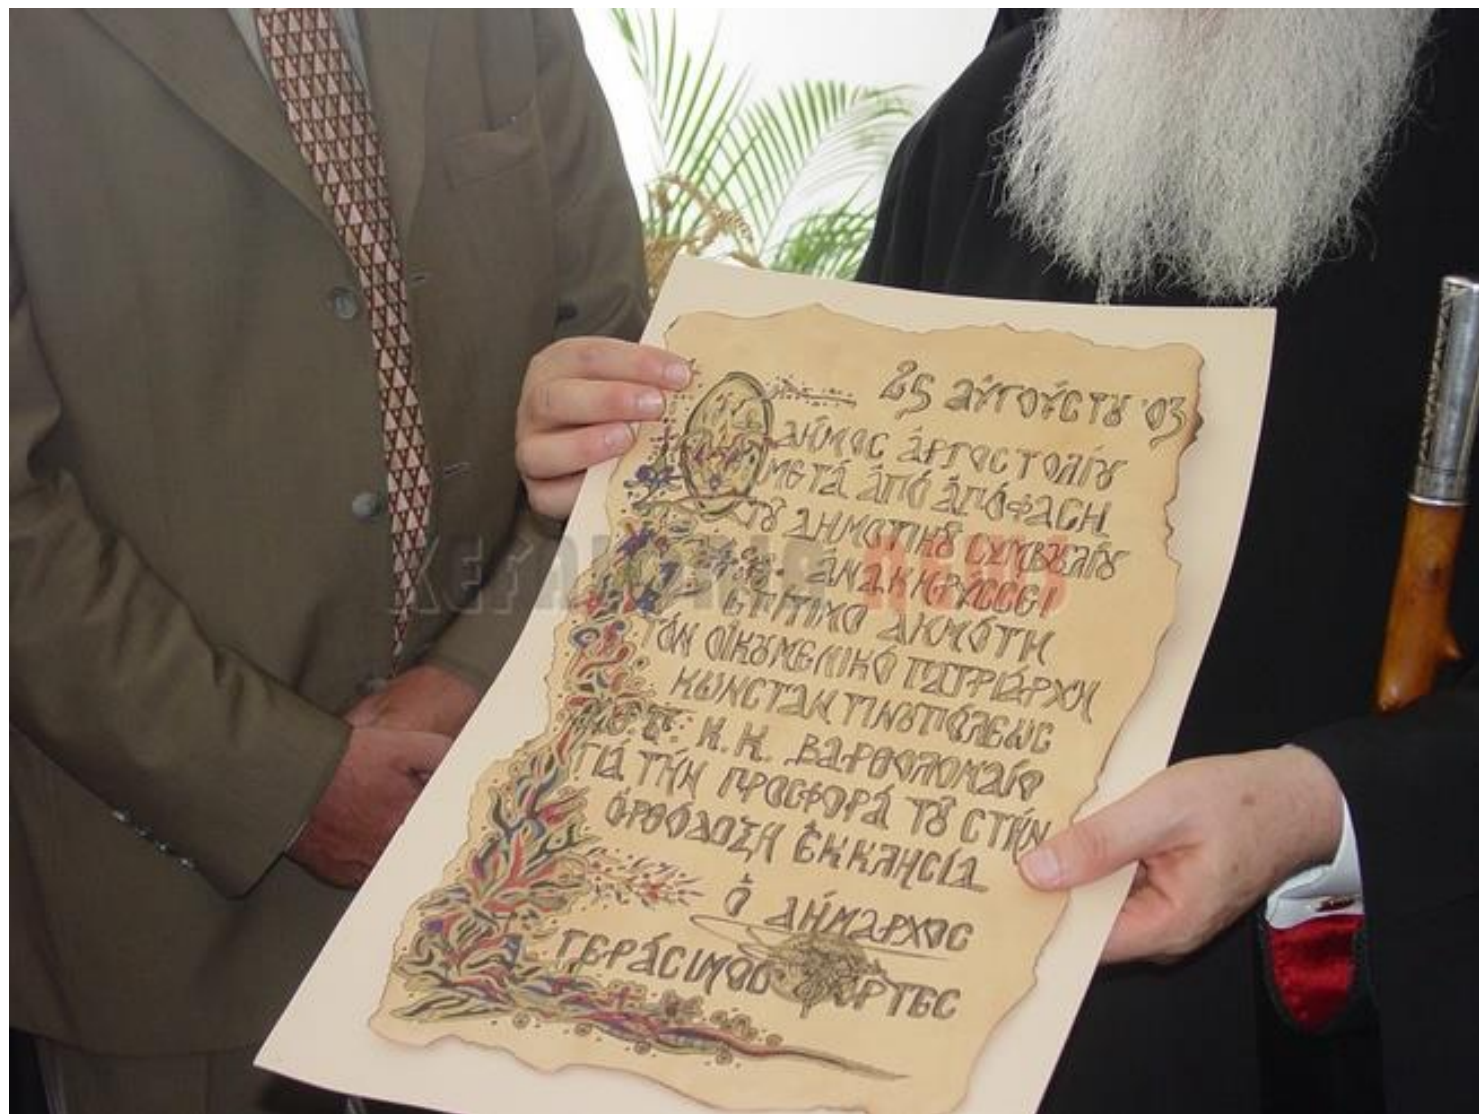 25 αὐγούστου '03
Ὁ Δῆμος Ἀργοστολίου
μετά ἀπό ἀπόφαση
τοῦ Δημοτικοῦ Συμβουλίου
ἀνακηρύσσει
ἐπίτιμο Δημότη
τόν Οἰκουμενικό Πατριάρχη
Κωνσταντινουπόλεως
κ.κ. Βαρθολομαῖο
γιά τήν προσφορά του στήν
ὀρθόδοξη Ἐκκλησία
ὁ Δήμαρχος
Γεράσιμος Φόρτες
ΚΕΦΑΛΟΝΙΑ NEWS